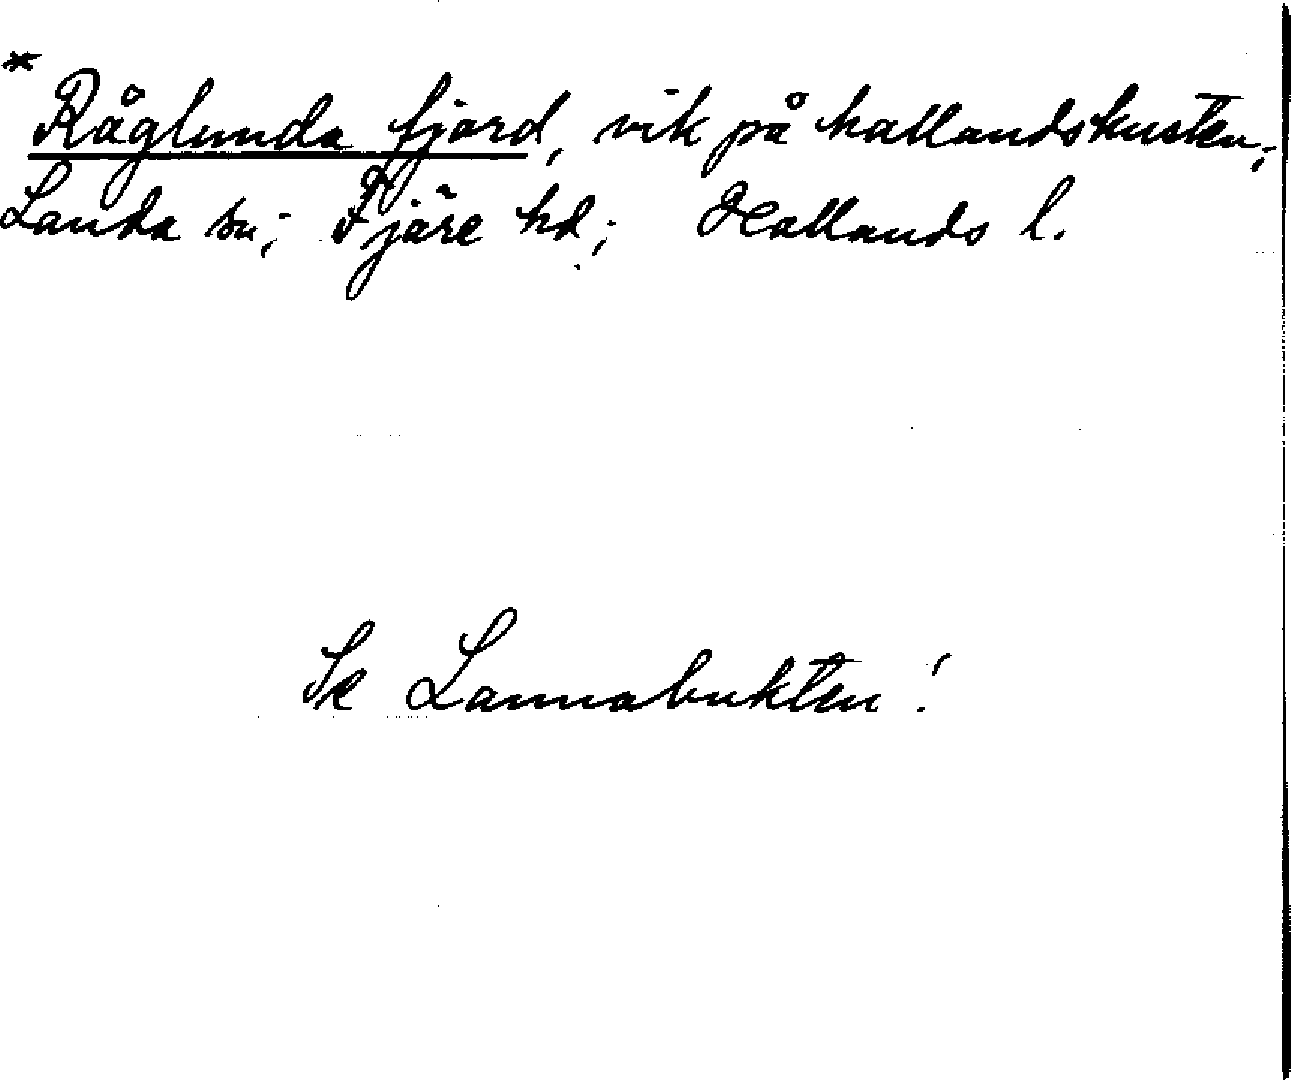 * Råglunda fjord, vik på hallandskusten;
Landa sn; Fjäre hd; Hallands l.
Se Lannabukten!